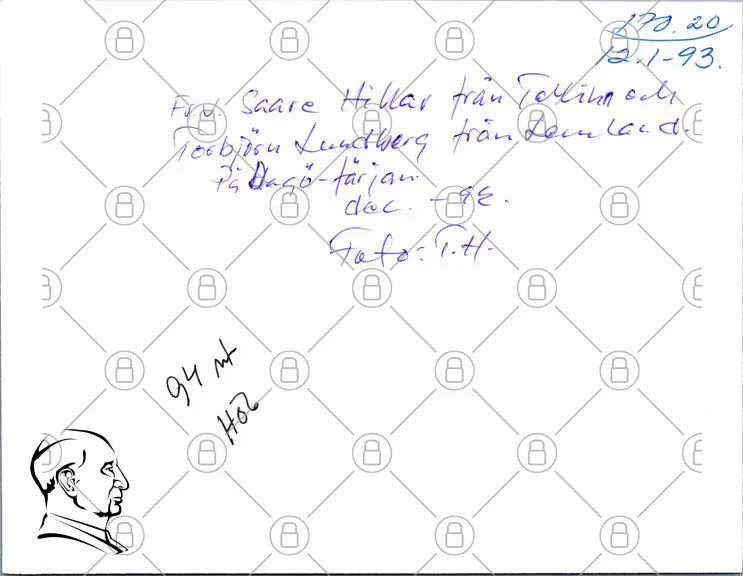 170.20
12.1-93.
Fr.v. Saare Hillar från Tallinn och
Torbjörn Lundberg från Lemland.
På Dagö-färjan.
dec. -92.
Foto: T.H.
94 mt